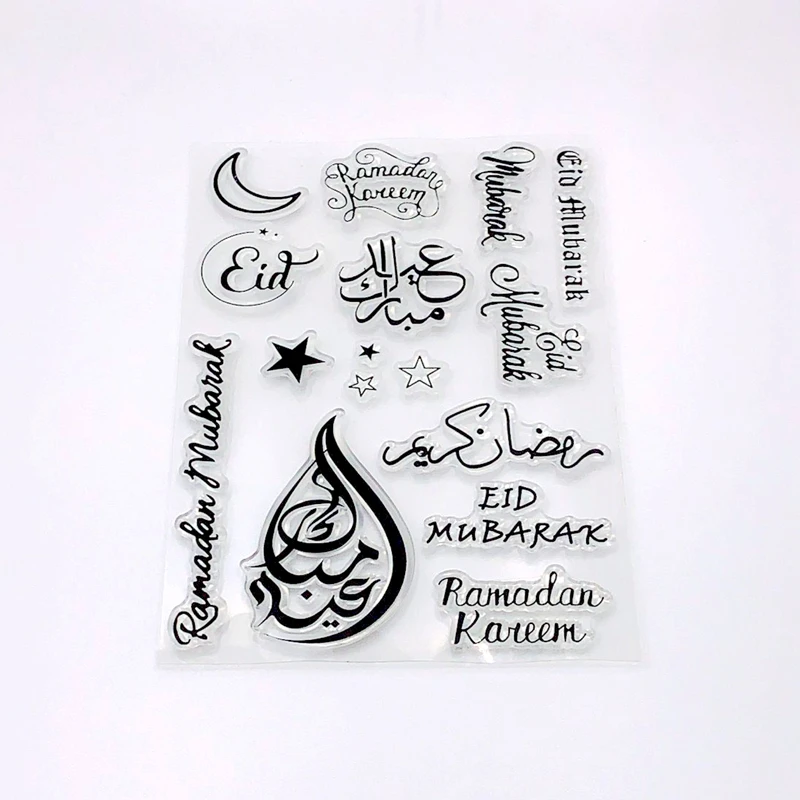 Ramadan
Kareem
Mubarak
Eid Mubarak
Eid
عيد
مبارك
Eid
Mubarak
Ramadan Mubarak
رمضان كريم
EID
MUBARAK
مبارك
عيد
Ramadan
Kareem